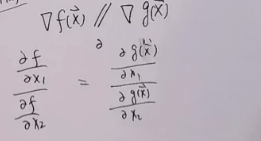 ∇f(x⃗) // ∇g(x⃗)
∂f/∂x₁ / ∂f/∂x₂ = ∂g(x⃗)/∂x₁ / ∂g(x⃗)/∂x₂